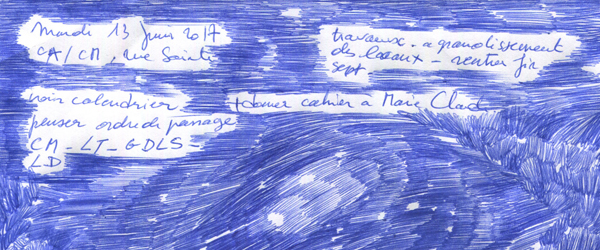 Mardi 13 juin 2017
CA/CM, rue Sainte
travaux - agrandissement
de locaux - rentrer fin
sept -
voir calendrier
+ donner cahier à Marie Claude
penser ordre de passage
CM - LT - GDLS -
LD